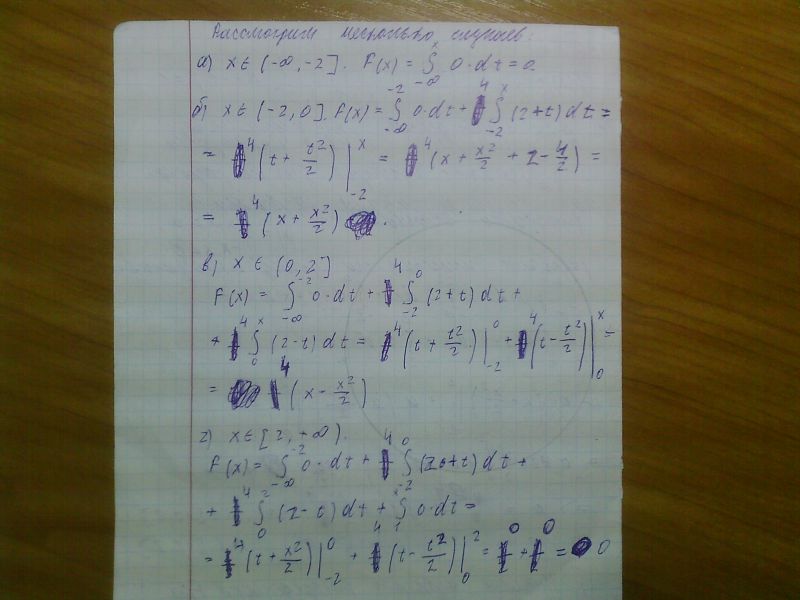 Рассмотрим несколько случаев:
а) x ∈ (-∞, -2]. F(x) = ∫_{-∞}^{x} 0·dt = 0.
б) x ∈ (-2, 0]. F(x) = ∫_{-∞}^{-2} 0·dt + 4 ∫_{-2}^{x} (2+t) dt =
= 4 (t + t²/2) |_{-2}^{x} = 4 (x + x²/2 + 2 - 4/2) =
= 4 (x + x²/2).
в) x ∈ (0, 2]
F(x) = ∫_{-∞}^{-2} 0·dt + 4 ∫_{-2}^{0} (2+t) dt +
+ 4 ∫_{0}^{x} (2-t) dt = 4 (t + t²/2) |_{-2}^{0} + 4 (t - t²/2) |_{0}^{x} =
= 4 (x - x²/2)
г) x ∈ [2, +∞).
F(x) = ∫_{-∞}^{-2} 0·dt + 4 ∫_{-2}^{0} (2+t) dt +
+ 4 ∫_{0}^{2} (2-t) dt + ∫ 0·dt =
= 4 (t + x²/2) |_{-2}^{0} + 4 (t - t²/2) |_{0}^{2} = 0 + 0 = 0